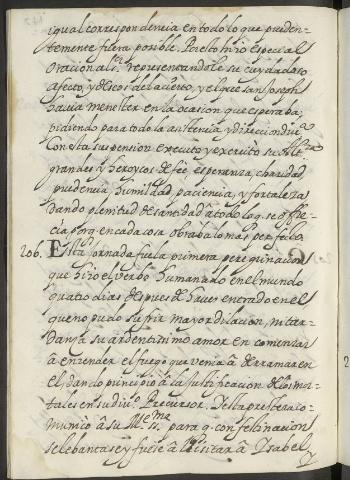 igual correspondencia en todo lo que pruden-
temente fuera posible. Por esto hizo especial
oracion al Sr. representandole su cuydadoso
afecto, y deseos del acierto, y el que san Joseph
havia menester en la ocasion que esperaba,
pidiendo para todo la asistencia, y direccion divᵃ
Con esta suspension executo y exercitò su Altᶻᵃ
grandes y heroycos de fè, esperanza, charidad
prudencia humildad paciencia, y fortaleza
dando plenitud de santidad à todo lo q. se offre-
cia porq. en cada cosa obraba lo mas perfecto.
206. Esta jornada fue la primera peregrinacion
que hizo el verbo humanado en el mundo
quatro dias despues de haver entrado en el
que no pudo sufrir mayor dilacion, ni tar-
danza su ardentissimo amor en comenzar
à encender el fuego que venia à derramar en
el dando principio à la justificacion de los mor-
tales en su divᵒ Precursor. Desta presteza co-
municò à su Mᵉ Sᵐᵃ para q. con festinacion
se lebantase y fuese à Visitar à Ysabel,
y